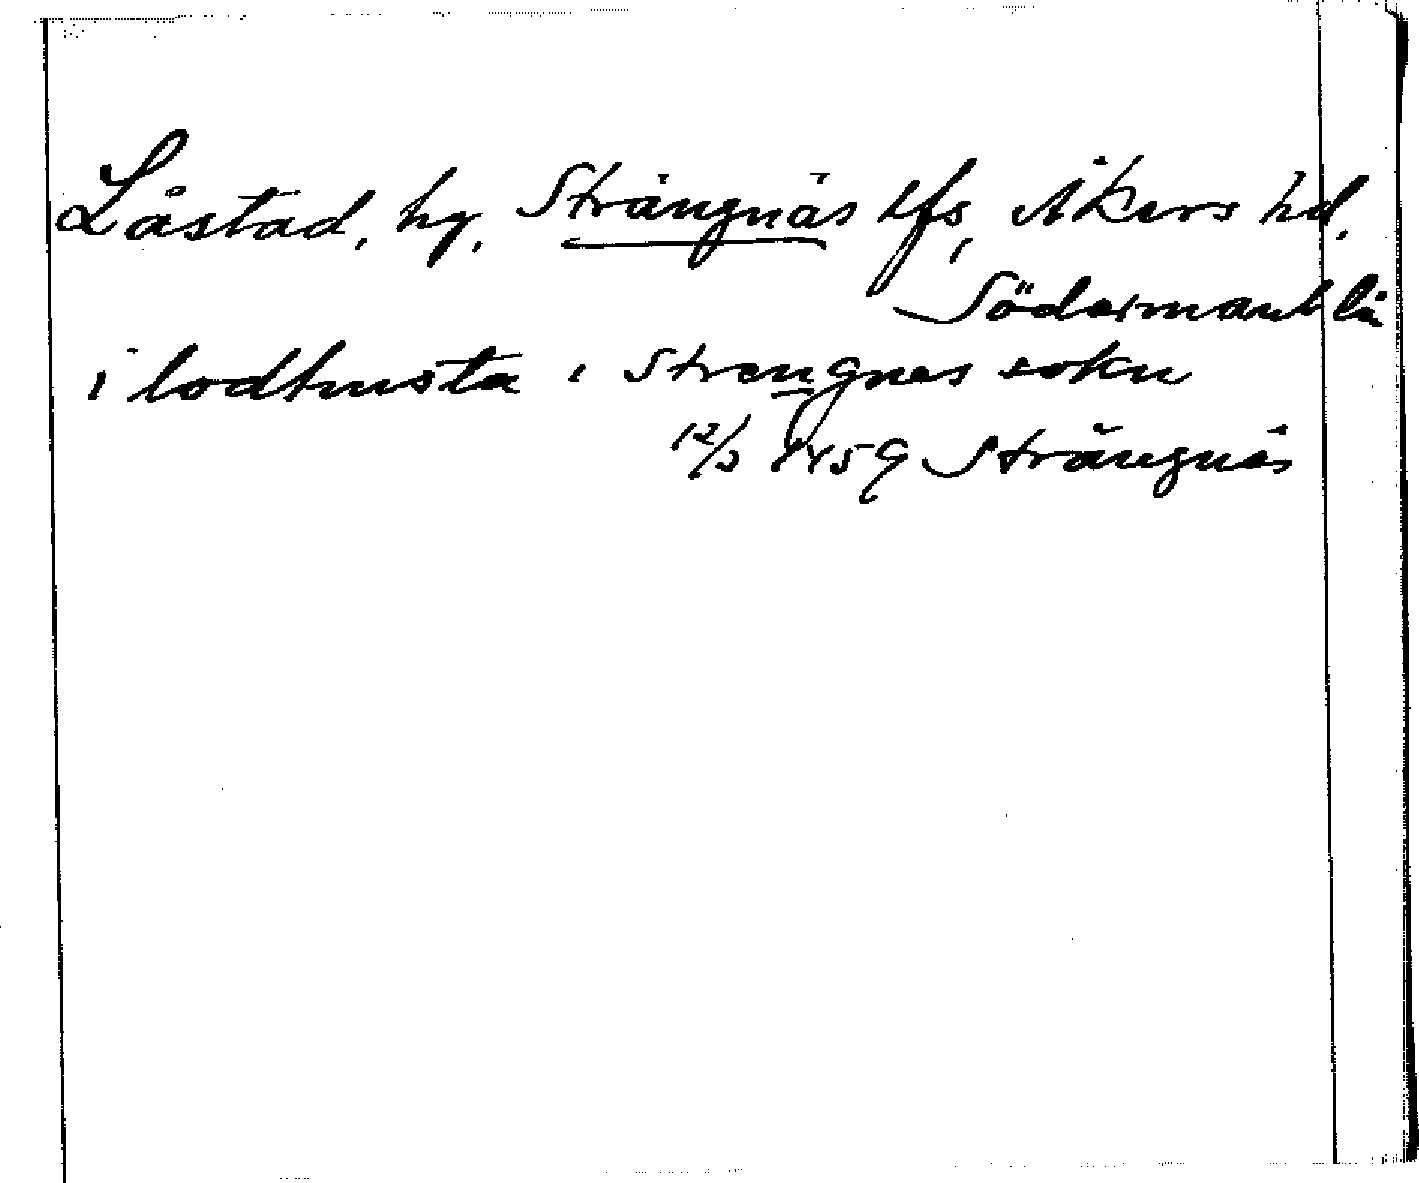 Låstad, hg, Strängnäs lfs, Åkers hd,
Södermanl län
i lodhusta i Strengnes sokn
12/3 1459 Strängnäs